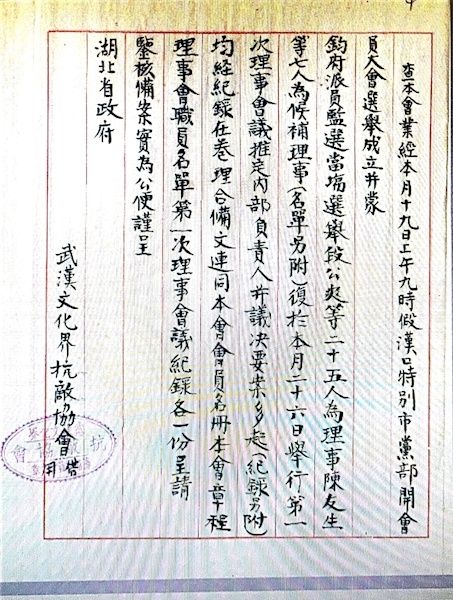 查本會業經本月十九日上午九時假漢口特別市黨部開會
員大會選舉成立并蒙
鈞府派員監選當場選舉段公爽等二十五人為理事陳友生
等七人為候補理事(名單另附)復於本月二十六日舉行第一
次理事會議推定內部負責人并議决要案多起(紀錄另附)
均經紀錄在卷理合備文連同本會會員名冊本會章程
理事會職員名單第一次理事會議紀錄各一份呈請
鑒核備案實為公便謹呈
湖北省政府
武漢文化界抗敵協會
抗敵協會